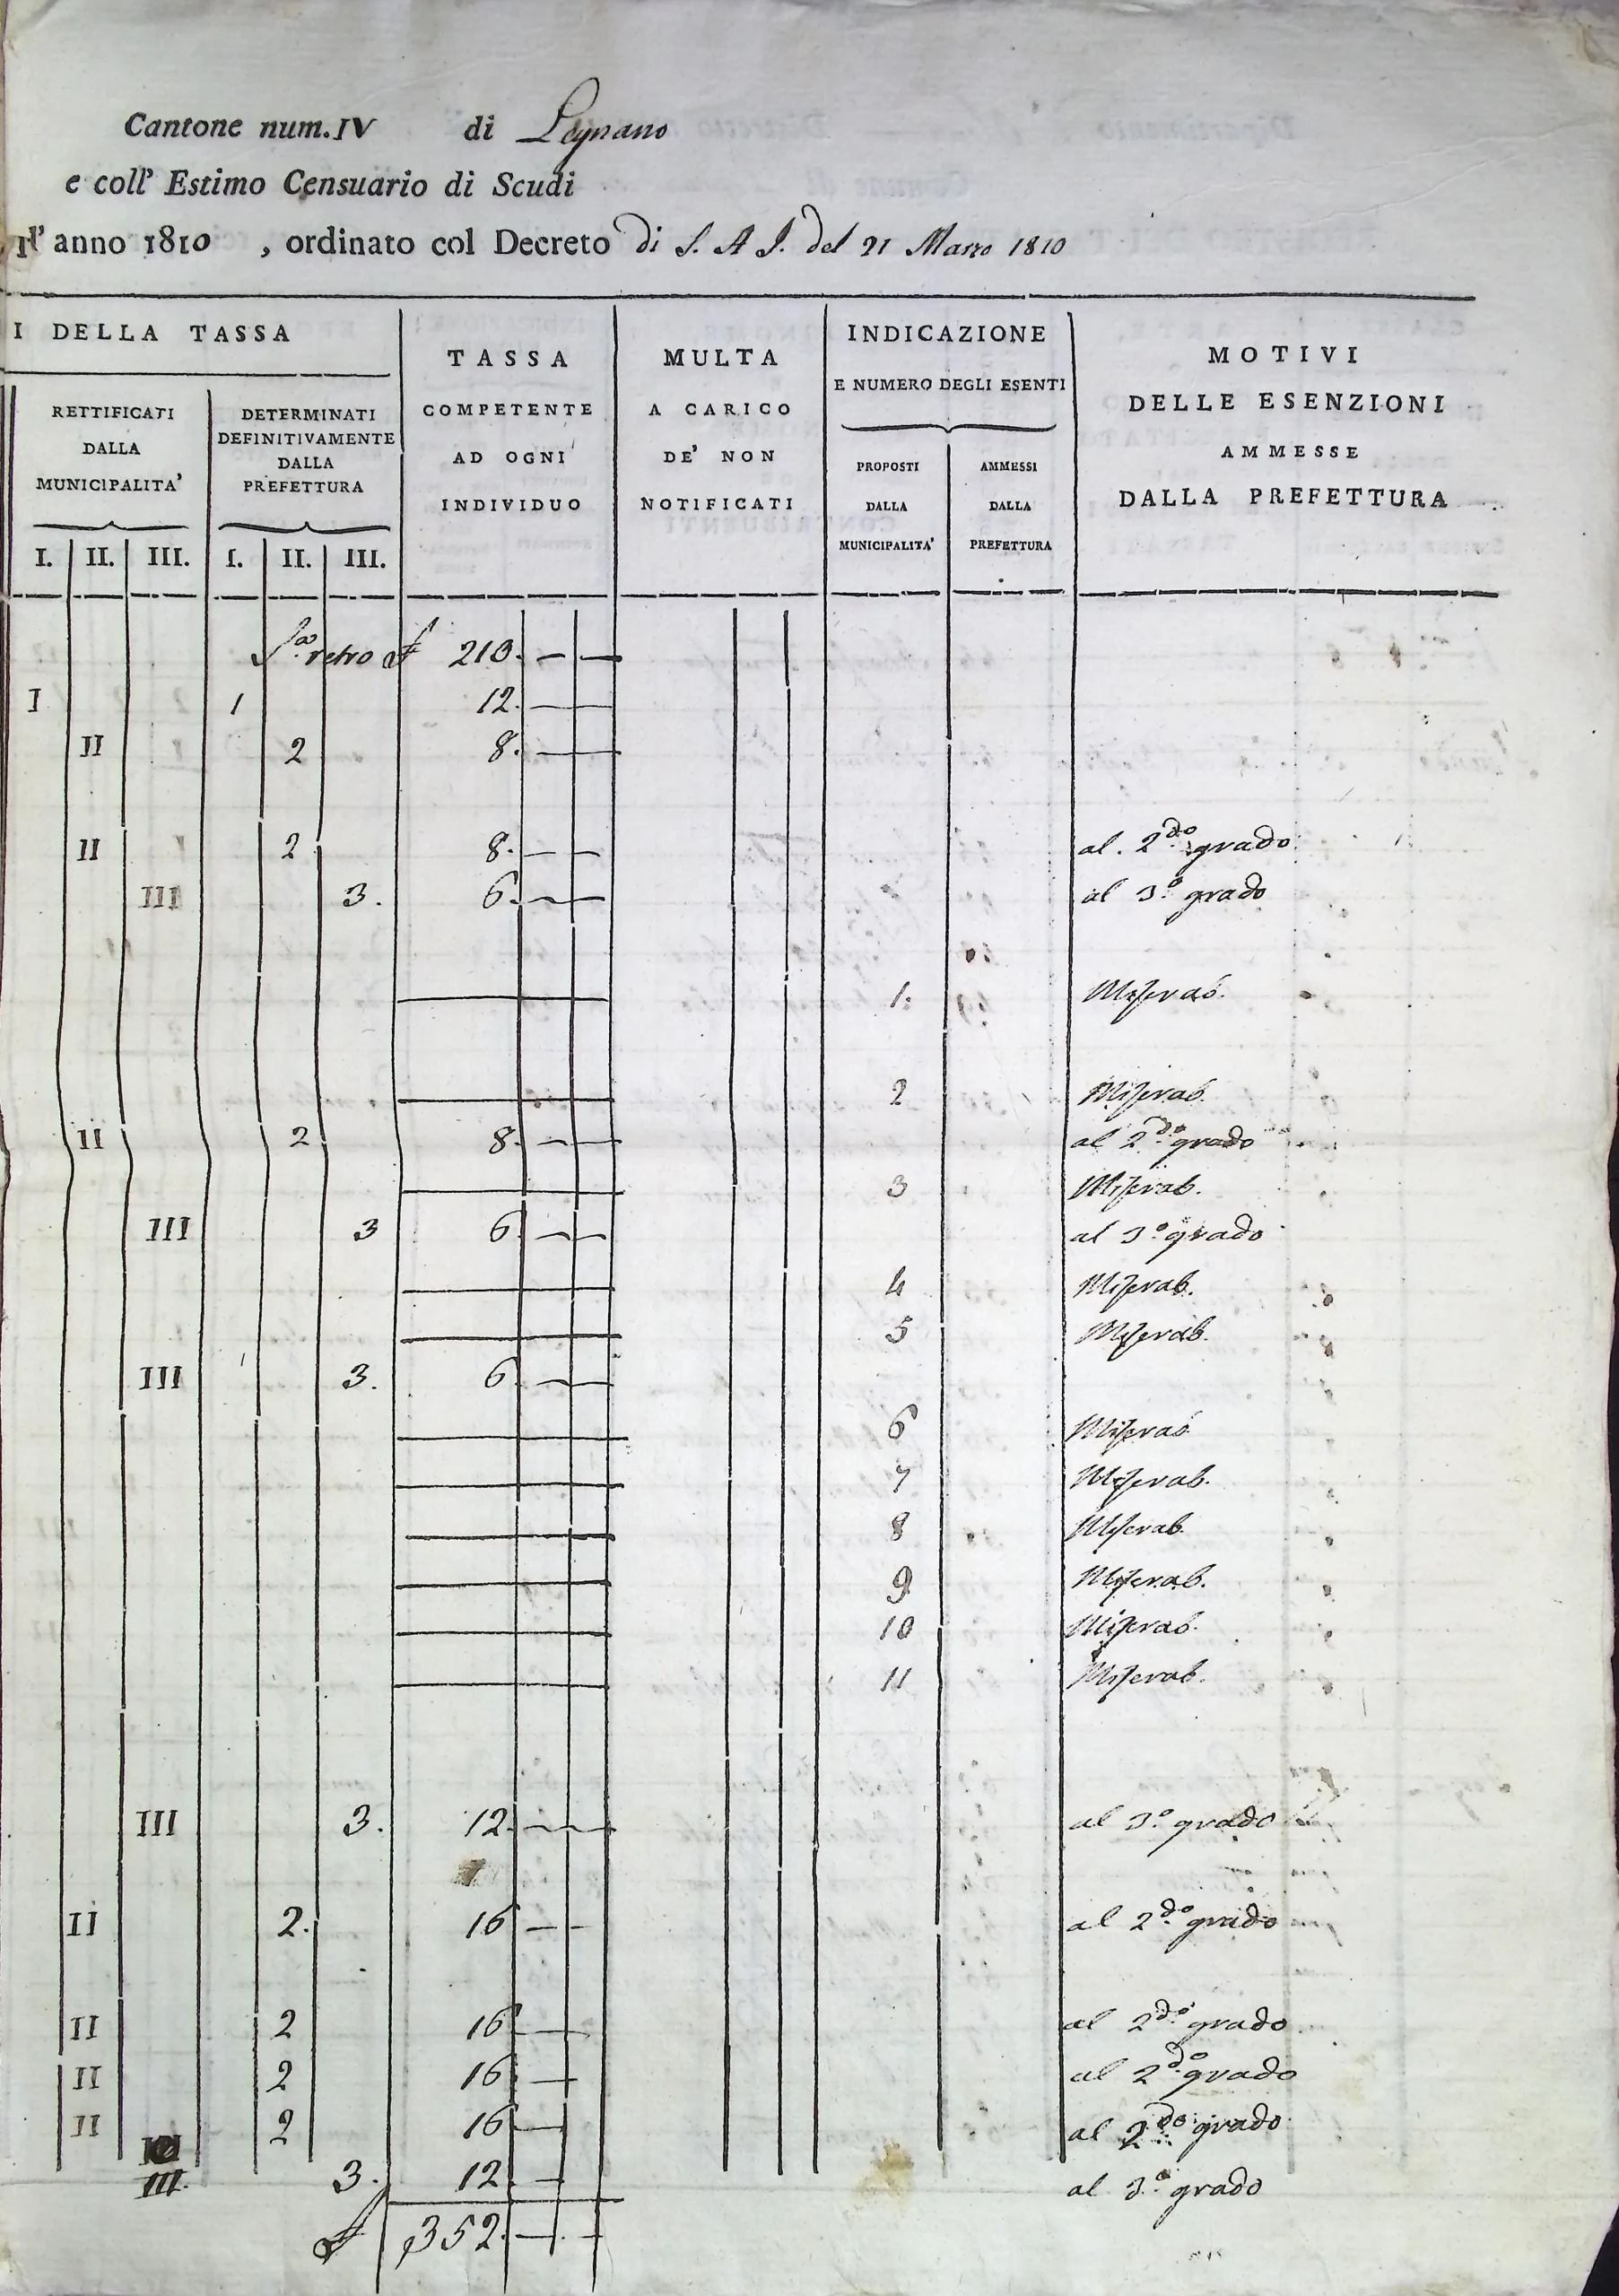 Cantone num. IV di Legnano
e coll' Estimo Censuario di Scudi
l' anno 1810 , ordinato col Decreto di S. A. I. del 21 Marzo 1810
I DELLA TASSA
RETTIFICATI
DALLA
MUNICIPALITA'
DETERMINATI
DEFINITIVAMENTE
DALLA
PREFETTURA
I. II. III. I. II. III.
TASSA
COMPETENTE
AD OGNI
INDIVIDUO
MULTA
A CARICO
DE' NON
NOTIFICATI
INDICAZIONE
E NUMERO DEGLI ESENTI
PROPOSTI
DALLA
MUNICIPALITA'
AMMESSI
DALLA
PREFETTURA
MOTIVI
DELLE ESENZIONI
AMMESSE
DALLA PREFETTURA
retro 210. — —
I 1 12. — —
II 2 8. — —
II 2 8. — — al 2.do grado
III 3. 6. — — al 3.o grado
1. Miserab.
2 Miserab.
II 2 8. — — al 2.do grado
3 Miserab.
III 3 6 — — al 3.o grado
4 Miserab.
5 Miserab.
III 3. 6 — —
6 Miserab
7 Miserab.
8 Miserab.
9 Miserab.
10 Miserab.
11 Miserab.
III 3. 12. — — al 3.o grado
II 2. 16 — — al 2.do grado
II 2 16 — — al 2.do grado
II 2 16 — al 2.do grado
II 2 16 — al 2.do grado
III. 3. 12. — al 3.o grado
352. — —